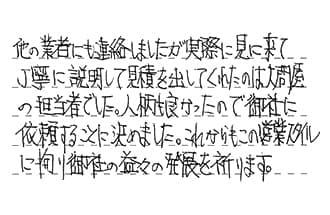 他の業者にも連絡しましたが実際に見に来て
丁寧に説明して見積を出してくれたのは
の担当者でした。人柄も良かったので御社に
依頼することに決めました。これからもこの営業スタイル
に拘り御社の益々の発展を祈ります。